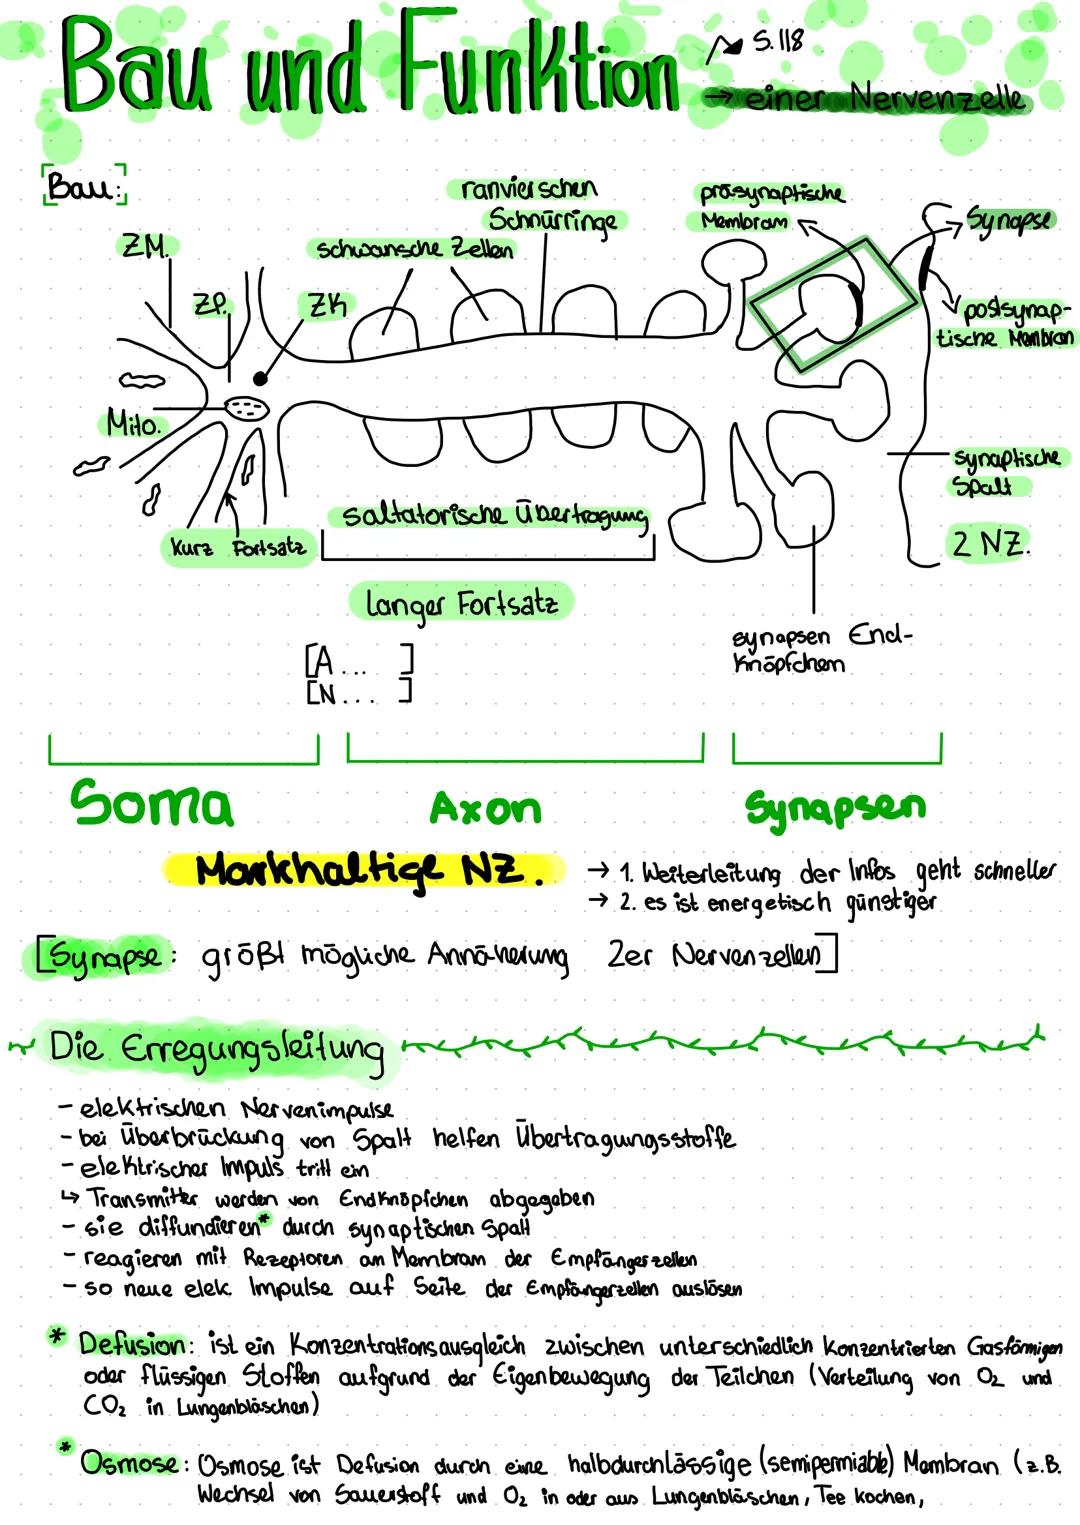 Bau und Funktion
S. 118
→ einer Nervenzelle
[Bau:]
ranvierschen
Schnürringe
präsynaptische
Membram
Synapse
ZM.
schwansche Zellen
ZP.
ZK
postsynap-
tische Membran
Mito.
synaptische
Spalt
saltatorische Übertragung
Kurz Fortsatz
2 NZ.
langer Fortsatz
synapsen End-
Knöpfchem
[A ... ]
[N ... ]
Soma
Axon
Synapsen
Markhaltige NZ.
→ 1. Weiterleitung der Infos geht schneller
→ 2. es ist energetisch günstiger
[Synapse: größt mögliche Annäherung 2er Nervenzellen]
Die Erregungsleitung
- elektrischen Nervenimpulse
- bei Überbrückung von Spalt helfen Übertragungsstoffe
- elektrischer Impuls tritt ein
↳ Transmitter werden von Endknöpfchen abgegeben
- sie diffundieren* durch synaptischen Spalt
- reagieren mit Rezeptoren an Membram der Empfängerzellen
- so neue elek. Impulse auf Seite der Empfängerzellen auslösen
* Defusion: ist ein Konzentrationsausgleich zwischen unterschiedlich Konzentrierten Gasförmigen
oder flüssigen Stoffen aufgrund der Eigenbewegung der Teilchen (Verteilung von O₂ und
CO₂ in Lungenbläschen)
* Osmose: Osmose ist Defusion durch eine halbdurchlässige (semipermiable) Membran (z.B.
Wechsel von Sauerstoff und O₂ in oder aus Lungenbläschen, Tee kochen,